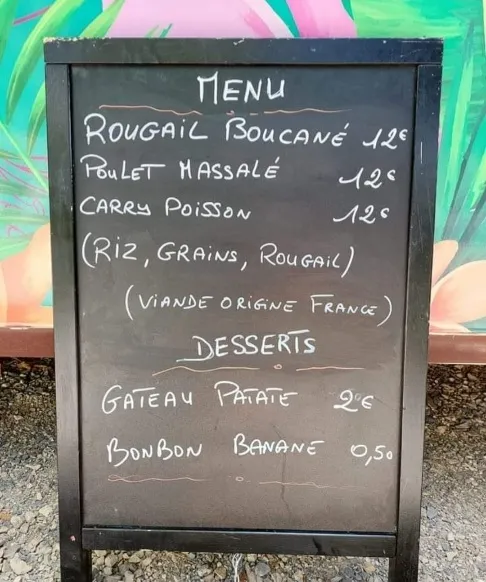 MENU
ROUGAIL BOUCANÉ 12€
POULET MASSALÉ 12€
CARRY POISSON 12€
(RIZ, GRAINS, ROUGAIL)
(VIANDE ORIGINE FRANCE)
DESSERTS
GATEAU PATATE 2€
BONBON BANANE 0,50